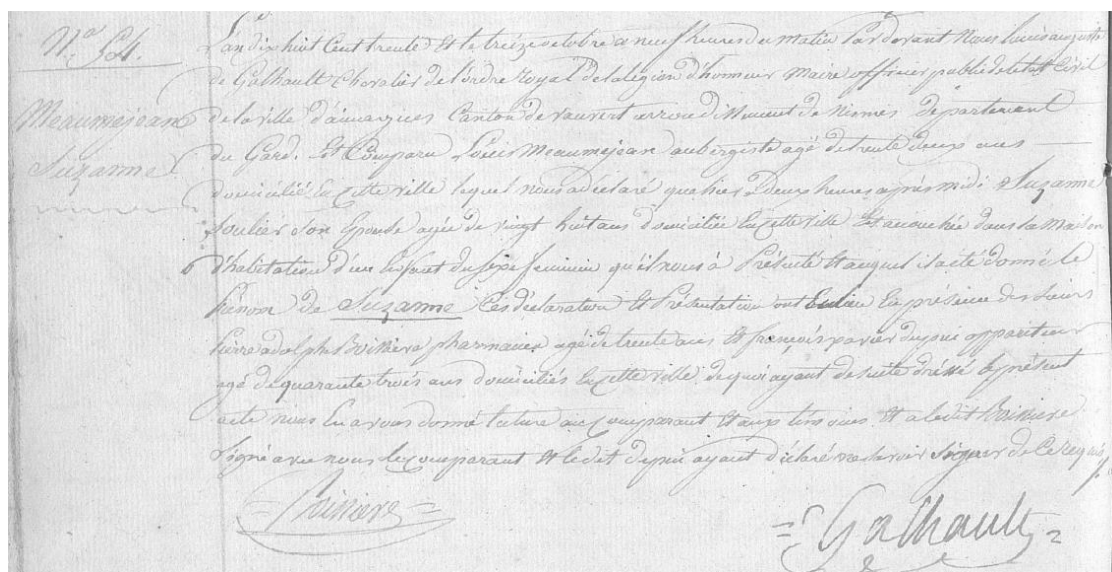 N.o 54.
Meaumejean
Suzanne
L'an dix huit Cent trente Et le treize octobre a neuf heures du matin Pardevant Nous Louis auguste
de Galhault Chevalier de l'ordre Royal de la légion d'honneur maire officier public de l'etat Civil
de la ville d'aimargues Canton de vauvert arrondissement de Nismes département
du Gard. Est Comparu Louis Meaumejean aubergiste agé de trente deux ans —
domicilié En Cette ville lequel nous a déclaré que hier a Deux heures après midi Suzanne
soulier son Epouse agée de vingt huit ans domiciliée En Cette ville Est acouchée dans sa maison
d'habitation d'un Enfant du sexe feminin qu'il nous à Présenté Et auquel il a été donné le
Prénom de Suzanne Ces déclaration Et Présentation ont Eu lieu En présence des sieurs
Pierre adolphe Boissiere pharmacien agé de trente ans Et françois xavier dupui appariteur
agé de quarante trois ans domiciliés En Cette ville. de quoi ayant de suite dréssé le présent
acte nous En avons donné lecture au Comparant Et aux témoins. Et a ledit Boissiere
Signé avec nous le Comparant Et ledit dupui ayant déclaré ne savoir Signer de Ce requis
Boissiere
Galhault